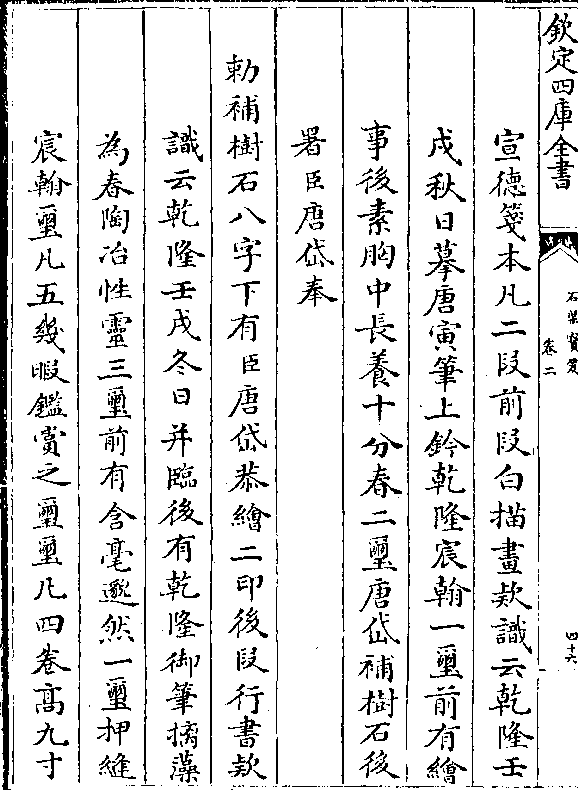 欽定四庫全書
石渠寶笈
卷二
四十六
宣德箋本凡二段前段白描畫款識云乾隆壬
戌秋日摹唐寅筆上鈐乾隆宸翰一璽前有繪
事後素胸中長養十分春二璽唐岱補樹石後
署臣唐岱奉
勅補樹石八字下有臣唐岱恭繪二印後段行書款
識云乾隆壬戌冬日并臨後有乾隆御筆摛藻
為春陶冶性靈三璽前有含毫邈然一璽押縫
宸翰璽凡五幾暇鑑賞之璽璽凡四卷高九寸